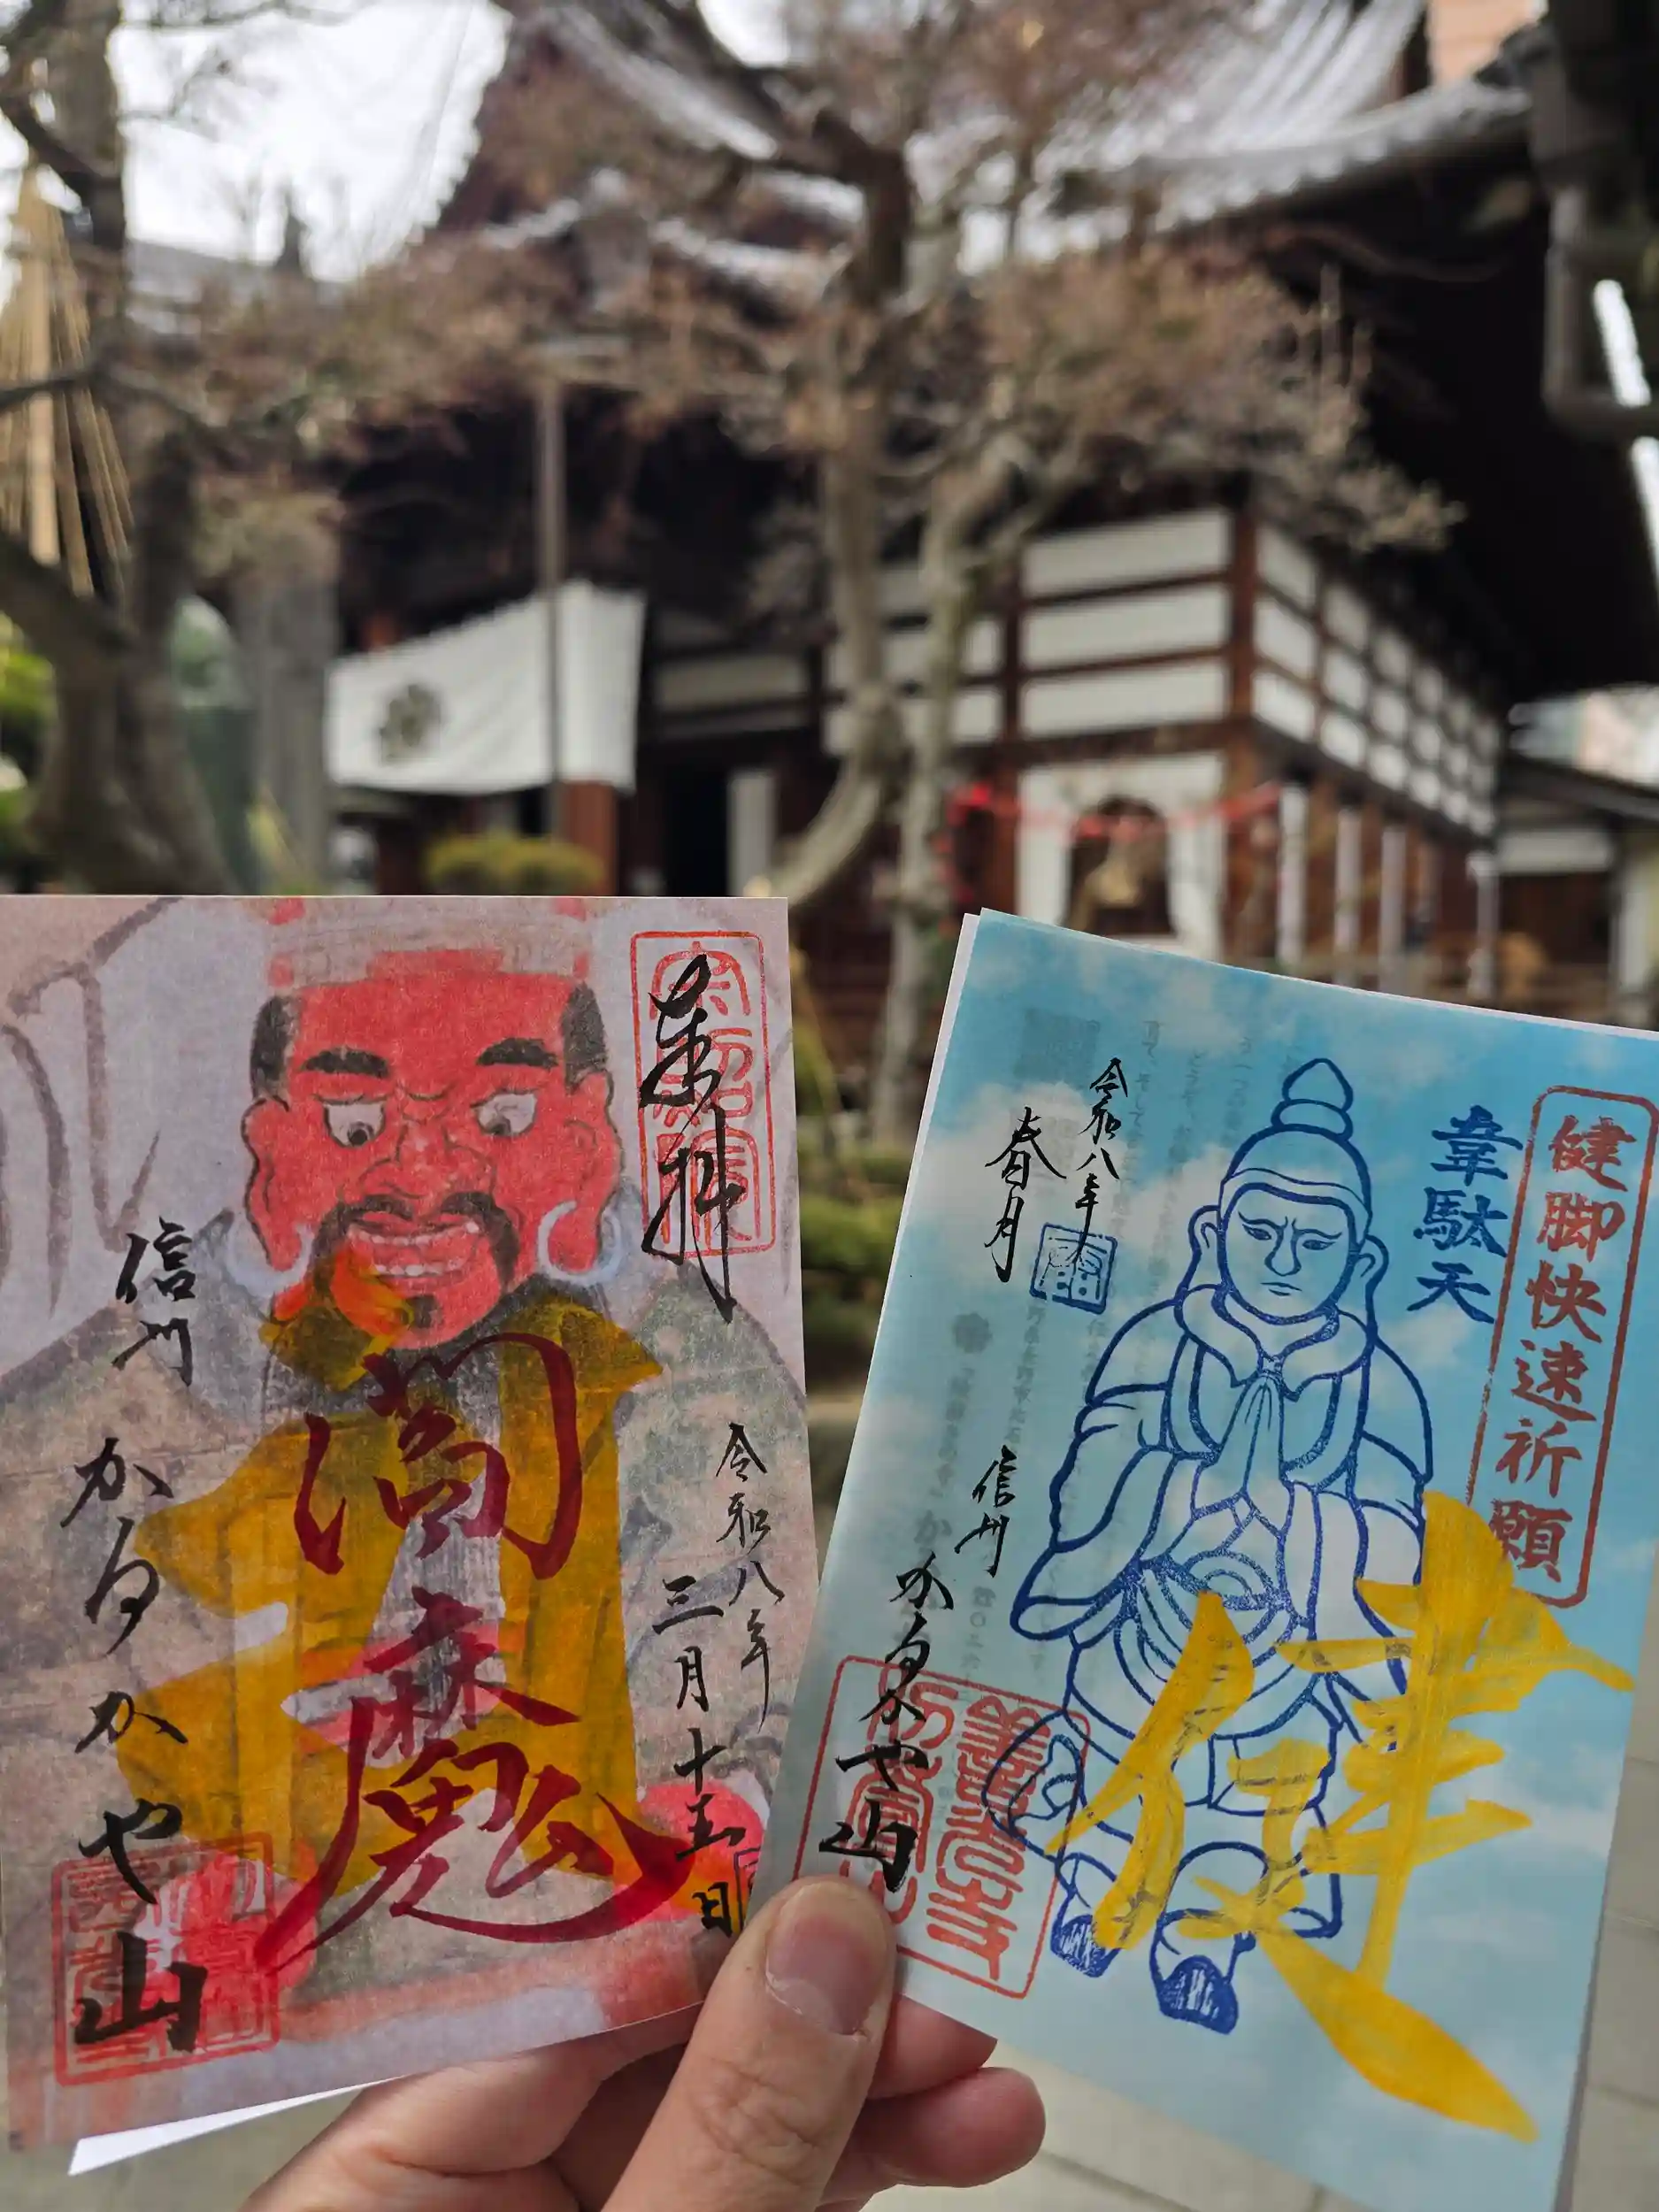 来拝
令和八年
三月十五日
閻魔
信州
かるかや山
健脚快速祈願
韋駄天
令和八年
春月
健
信州
かるかや山